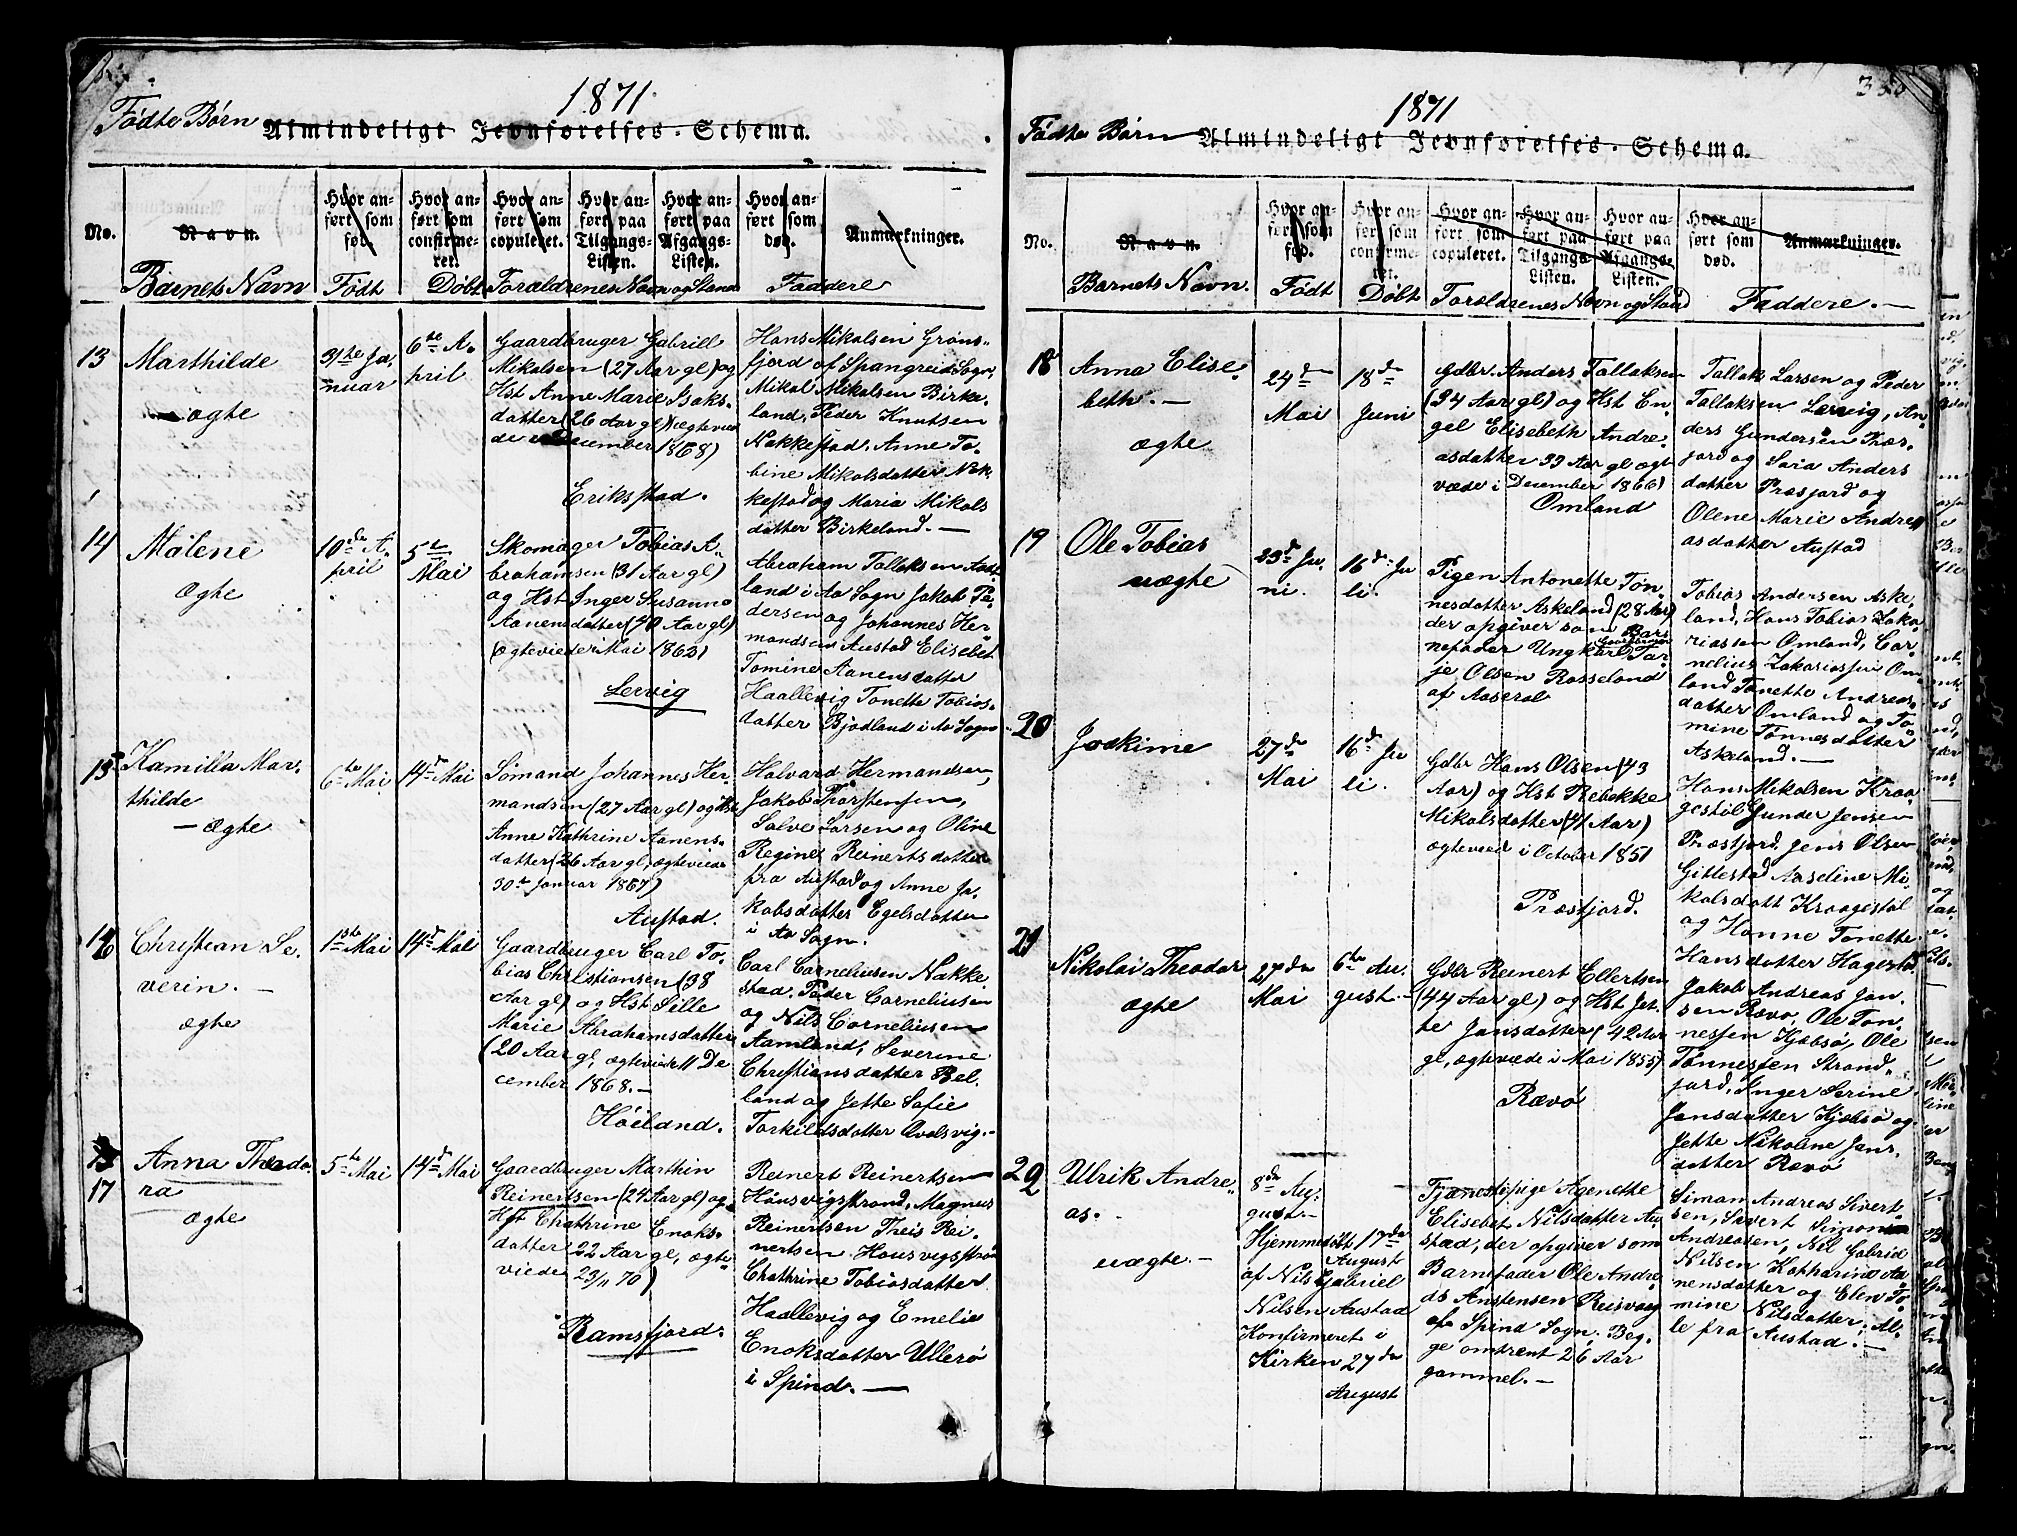 1871.
Fødte Børn Almindeligt Jevnførelses-Schema.
No.
Navn.
Hvor anført som fød.
Hvor anført som confirmeret.
Hvor anført som copuleret.
Hvor anført paa Tilgangs-Listen.
Hvor anført paa Afgangs-Listen.
Hvor anført som død.
Anmærkninger.
Barnets Navn Født Døbt Forældrenes Navn og Stand Faddere
13 Marthilde
ægte
31te Ja-
nuar
6te A-
pril
Gaardbruger Gabriell
Mikolsen (27 Aar gl) og
Hst Anne Marie Isaks-
datter (26 Aar gl) (ægtevie
de i December 1868)
Eriksstad.
Hans Mikolsen Grøns-
fjord af Spangreid Sogn,
Mikol Mikolsen Birke-
land, Peder Knutsen
Nakkestad, Anne To-
bine Mikolsdatter Nak-
kestad og Maria Mikols
datter Birkeland. —
14 Målene
Ægte
10de A-
pril
5te
Mai
Skomager Tobias A-
brahamsen (31 Aar gl)
og Hst Inger Susanne
Aanensdatter (40 Aar gl)
(ægteviede i Mai 1862)
Lervig
Abraham Tallaksen
land i Aa Sogn Jakob Pe-
dersen og Johannes Her-
mandsen Austad Elisebet
Tomine Aanensdatter
Haallevig Tonette Tobias-
datter Bjodland i Aa Sogn
15 Kamilla Mar-
thilde
— Ægte
6te Mai
14de Mai
Sømand Johannes Her-
mandsen (27 Aar gl) og Hst
Anne Kathrine Aanens-
datter (26 Aar gl, ægteviede
30te Januar 1867)
Austad.
Halvard Hermandsen,
Jakob Thorstensen,
Salve Larsen og Oline
Regine Reinertsdatter
fra Austad og Anne Ja-
kobsdatter Egelsdatter
i Aa Sogn.
16 Christian Se-
verin. —
ægte
1ste Mai
14de Mai
Gaardbruger Carl To-
bias Christiansen (38
Aar gl) og Hst Sille
Marie Abrahamsdatter
(20 Aar gl, ægteviede 11 De
cember 1868. —
Høiland.
Carl Corneliusen Nakke-
stad, Peder Corneliusen
og Nils Corneliusen
Aamland, Severine
Christiansdatter Bel-
land og Jette Sofie
Torkildsdatter Qvalsvig. —
17 Anna Theodo-
ra
ægte
5te Mai
14de Mai
Gaardbruger Marthin
Reinertsen (24 Aar gl) og
Hst Chathrine Enoks-
datter 22 Aar gl, ægte-
viede 23/11 70)
Ramsfjord.
Reinert Reinertsen
Hausvigstrand, Magnus
Reinertsen Theis Rei-
nertsen Hausvigstrand
Chathrine Tobiasdatter
Haallevig og Emelie
Enoksdatter Ullerø
i Spind. —
1871
Fødte Børn Almindeligt Jevnførelses-Schema.
No.
Navn.
Hvor anført som fød.
Hvor anført som confirmeret.
Hvor anført som copuleret.
Hvor anført paa Tilgangs-Listen.
Hvor anført paa Afgangs-Listen.
Hvor anført som død.
Anmærkninger.
Barnets Navn. Født Døbt Forældrenes Navn og Stand Faddere. —
18 Anna Elise-
beth. —
ægte
24de
Mai
18de
Juni
Gdbr Anders Tallaksen
(34 Aar gl) og Hst En-
gel Elisebeth Andre-
asdatter 33 Aar gl ægt
viede i December 1866)
Omland
Tallak Larsen og Peder
Tallaksen Lervig, An-
ders Gundersen Præs-
fjord og Saria Anders
datter Præsfjord og
Olene Marie Andre
asdatter Austad
19 Ole Tobias
uægte
23de Ju-
ni.
16de Ju
li.
Pigen Antonette Tøn-
nesdatter Askeland (28 Aar)
der opgiver som Bar-
nefader Ungkarl Tar-
je Olsen Rosseland
af Aaseral
Tobias Andersen Aske-
land, Hans Tobias Zaka-
riassen Omland, Cor-
nelius Zakariassen Om-
land Tonette Andreas-
datter Omland og To-
mine Tønnesdatter
Askeland. —
20 Joakime
27de
Mai
16de Ju
li.
Gdbr Hans Olsen (43
Aar) og Hst Rebekke
Mikolsdatter (41 Aar)
ægteviede i October 1851
Præstfjord.
Hans Mikolsen Kraa-
gestøl Gunder Jensen
Præstfjord, Jens Olsen
Gitlestad Aaseline Mi-
kolsdatt Kraagestøl
og Hanne Tonette
Hansdatter Hagestad
21 Nikolai Theodor
ægte
27de
Mai
6te Au-
gust. —
Gdbr Reinert Ellertsen
(44 Aar gl) og Hst Jet-
te Jansdatter (42 Aar
gl, ægteviede i Mai 1855)
Rævø
Jakob Andreas Jan-
sen Rævø, Ole Tøn-
nessen Hjøbsø, Ole
Tønnessen Strand-
fjord, Inger Serine
Jansdatter Kjøbsø og
Jette Nikoline Jans-
datter Rævø
22 Ulrik Andre-
as.
uægte. —
8de Au-
gust. —
Hjemmedøbt 17de
August
af Nils Gabriel
Nilsen Austad
Konfirmeret i
Kirken 27de
August
Tjenestepige Agenette
Elisebet Nilsdatter Au
stad, der opgiver som
Barnefader Ole Andre-
as Anstensen Reisvaag
af Spind Sogn, Beg-
ge omtrent 26 Aar
gammel. —
Simon Andreas Sivert-
sen, Sivert Simon
Andreasen, Nil Gabriel
Nilsen Katharine Aa-
nensdatter og Elen To-
mine Nilsdatter, Al-
le fra Austad. —